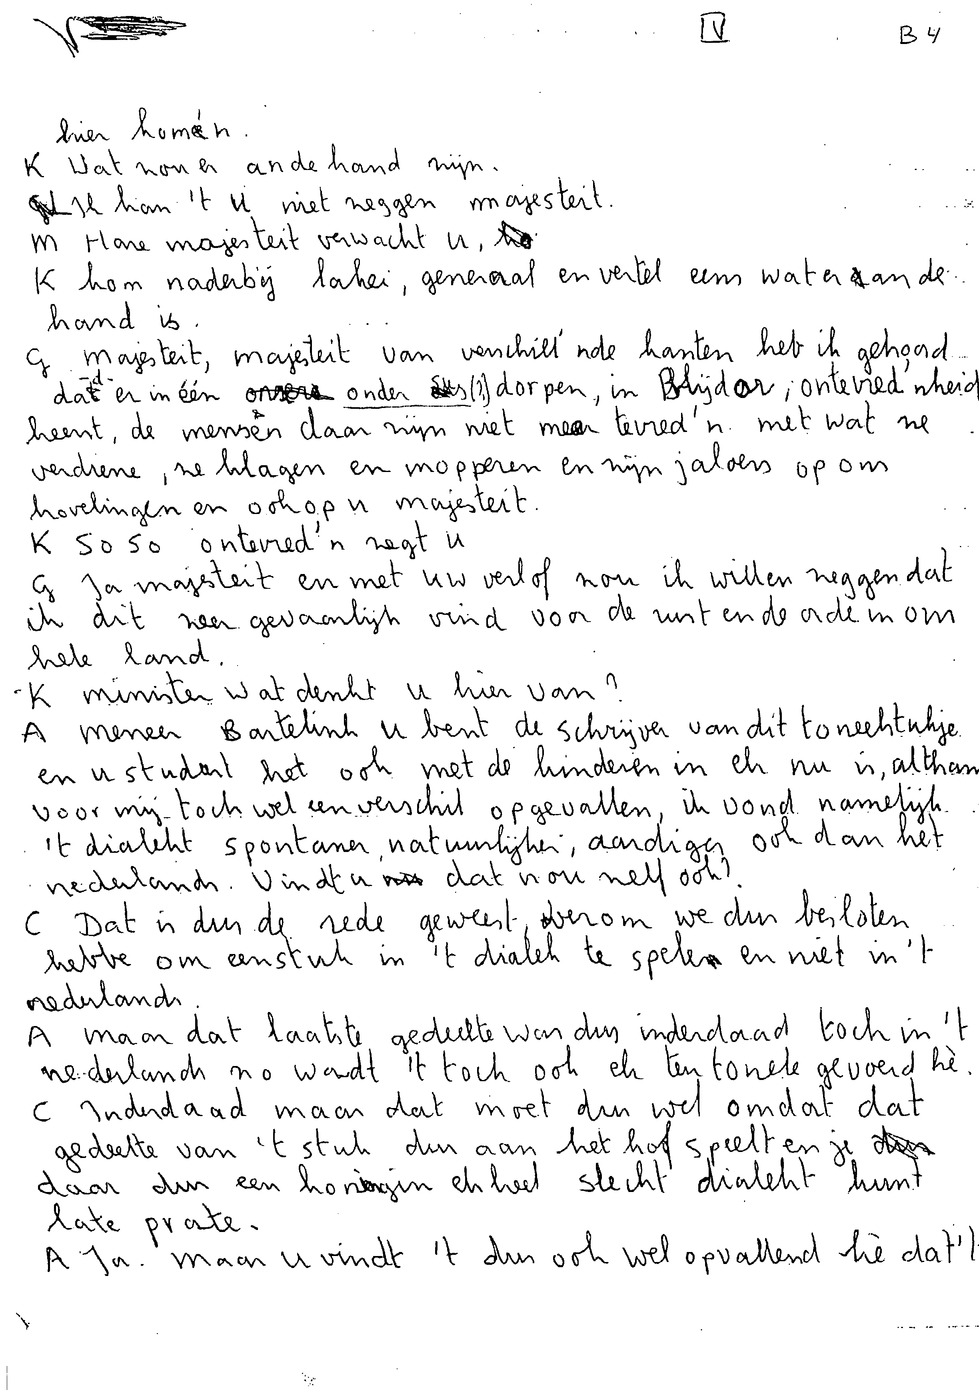 V B 4
hier komén.
K Wat zou er ande hand zijn.
L Ik kan 't u niet zeggen majesteit.
M Hare majesteit verwacht u,
K kom naderbij lakei, generaal en vertel eens wat er aan de
hand is.
G majesteit, majesteit van verschill'nde kanten heb ik gehoord
dat er in één onder (?) dorpen, in Blijdor, ontevred'nheid
heerst, de mensen daar zijn niet meer tevred'n met wat ze
verdiene, ze klagen en mopperen en zijn jaloers op ons
hovelingen en ook op u majesteit.
K So so ontevred'n zegt u
G Ja majesteit en met uw verlof zou ik willen zeggen dat
ik dit zeer gevaarlijk vind voor de rust en de orde in ons
hele land.
K minister wat denkt u hier van?
A meneer Bartelink u bent de schrijver van dit toneelstukje
en u studeert het ook met de kinderen in eh nu is, althans
voor mij toch wel een verschil opgevallen, ik vond namelijk
't dialekt spontaner, natuurlijker, aardiger ook dan het
nederlands. Vindt u dat nou zelf ook?
C Dat is dus de rede geweest, werom we dus besloten
hebbe om een stuk in 't dialek te spelen en niet in 't
nederlands.
A maar dat laatste gedeelte was dus inderdaad toch in 't
nederlands zo wordt 't toch ook eh ten tonele gevoerd hè.
C Inderdaad maar dat moet dus wel omdat dat
gedeelte van 't stuk dus aan het hof speelt en je
daar dus een koningin eh heel slecht dialekt kunt
late prate.
A Ja. Maar u vindt 't dus ook wel opvallend hè dat 't